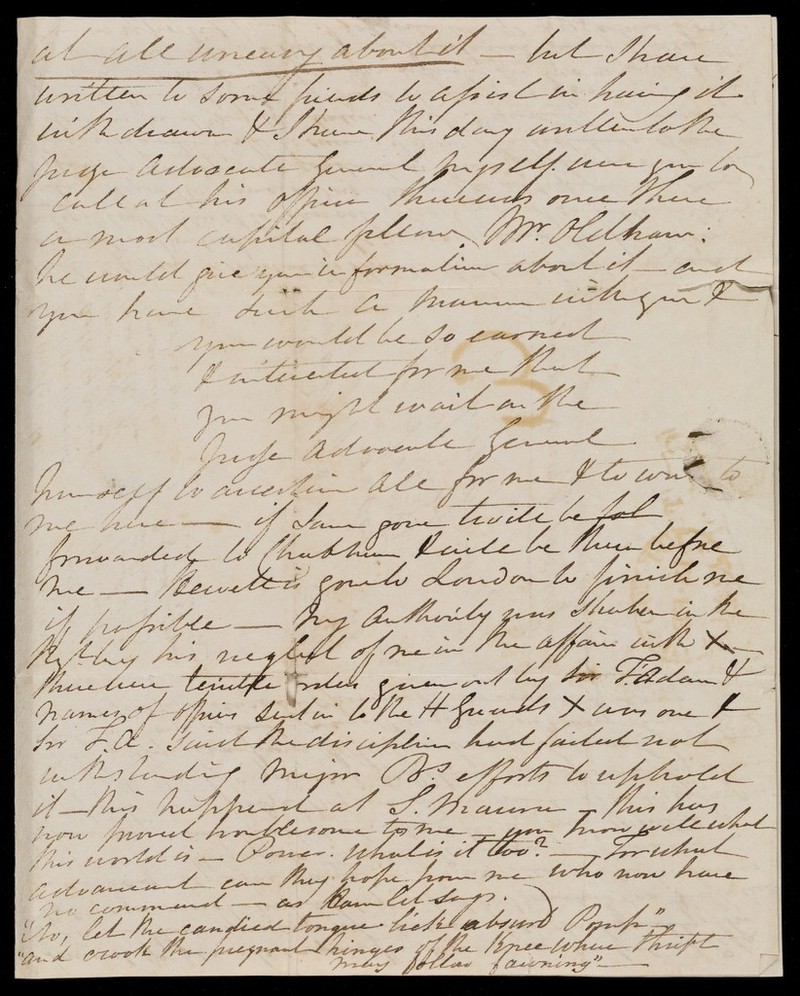 at all uneasy about it — but I have
written to some friends to assist in having it
withdrawn & I have this day written to the
Judge Advocate General myself. were you to
call at his office there was once there
a most capital fellow Mr. Oldham:
he would give you information about it — and
you have such a manner with you &
you would be so earnest
& interested for me that
you might wait on the
Judge Advocate General
himself to ascertain all for me & to write to
me here — if I am gone twill be
forwarded to Chubbham & will be there before
me — Hewett is gone to London to finish me
if possible — my authority was shaken in the
Regt by his neglect of me in the affair with X
there were terrible orders given out by Sir F. Adam &
names of officers sent in to the H Guards X was one &
Sir F. A. said the discipline had failed not
withstanding Major B's efforts to uphold
it — this happened at S. Maura — this has
now proved troublesome to me — you know well what
this world is — Power. what is it too? — For what
advancement can they hope from me who now have
no command — as Hamlet says.
"No, let the candied tongue lick absurd Pomp"
"and crook the pregnant hinges of the Knee where thrift
may follow fawning" —